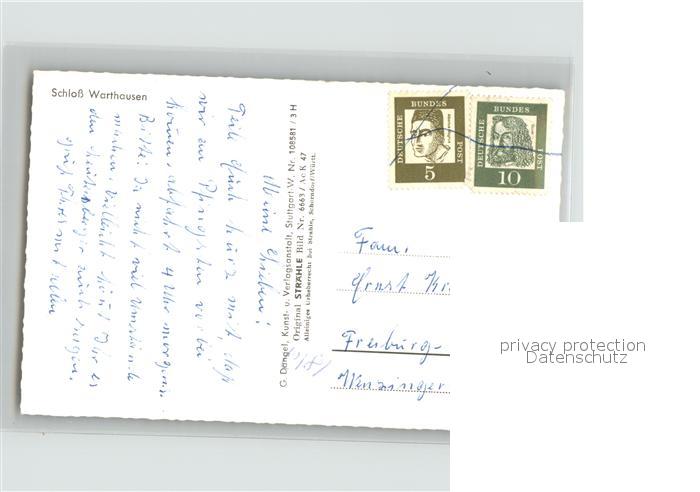 Schloß Warthausen
Meine Lieben!
Teile Euch kurz mit, daß
wir an Pfingsten vorbei
kommen, abfahrt 4 Uhr morgens.
Bitte: Ja nicht viel Umstände
machen. Vielleicht könnt Ihr es
den sagen.
G. Dangel, Kunst- u. Verlagsanstalt, Stuttgart-W, Nr. 108581 / 3 H
Original STRÄHLE Bild Nr. 6663 / Ac K 47
Alleiniges Urheberrecht bei Strähle, Schorndorf/Württ.
DEUTSCHE BUNDES POST
5
DEUTSCHE BUNDES POST
10
Fam.
Ernst
Freiburg-
Wenzinger
privacy protection
Datenschutz